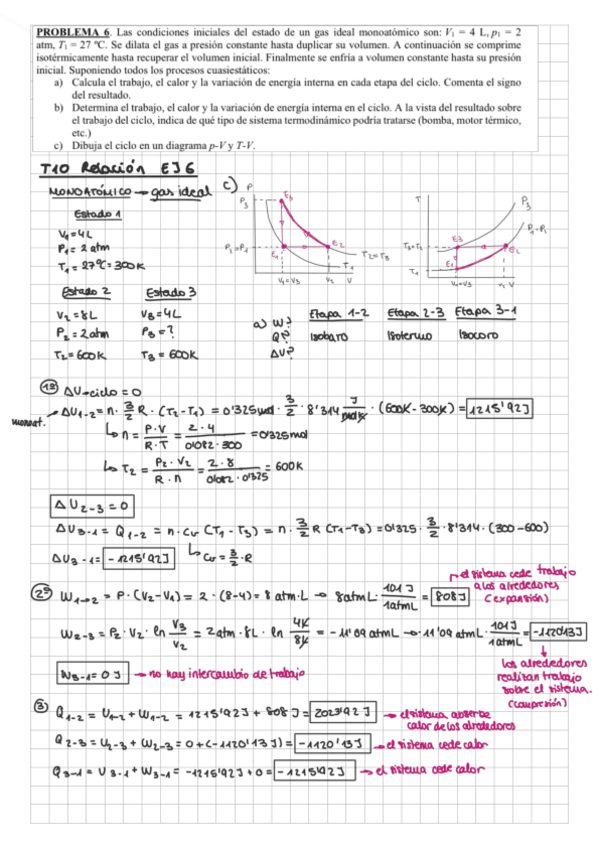 PROBLEMA 6. Las condiciones iniciales del estado de un gas ideal monoatómico son: V₁ = 4 L, p₁ = 2
atm, T₁ = 27 ºC. Se dilata el gas a presión constante hasta duplicar su volumen. A continuación se comprime
isotérmicamente hasta recuperar el volumen inicial. Finalmente se enfría a volumen constante hasta su presión
inicial. Suponiendo todos los procesos cuasiestáticos:
a) Calcula el trabajo, el calor y la variación de energía interna en cada etapa del ciclo. Comenta el signo
del resultado.
b) Determina el trabajo, el calor y la variación de energía interna en el ciclo. A la vista del resultado sobre
el trabajo del ciclo, indica de qué tipo de sistema termodinámico podría tratarse (bomba, motor térmico,
etc.)
c) Dibuja el ciclo en un diagrama p-V y T-V.
T10 Relación EJ6
MONOATÓMICO → gas ideal
Estado 1
V₁=4L
P₁=2atm
T₁=27ºC=300K
Estado 2
V₂=8L
P₂=2atm
T₂=600K
Estado 3
V₃=4L
P₃=?
T₃=600K
c)
P
P₃
E₃
P₂=P₁
E₁
E₂
T₂=T₃
T₁
V₁=V₃
V₂
V
T
P₃
P₁=P₂
T₃=T₂
E3
E2
T₁
E1
V₁=V₃
V₂
V
a) W?
Q?
ΔU?
Etapa 1-2
Isobaro
Etapa 2-3
Isotermo
Etapa 3-1
Isocoro
1º ΔU-ciclo=0
monoat. ΔU₁₋₂ = n · 3/2 R · (T₂-T₁) = 0'325mol · 3/2 · 8'314 J/mol·K · (600K-300K) = 1215'92J
↳ n = P·V/R·T = 2·4/0'082·300 = 0'325mol
↳ T₂ = P₂·V₂/R·n = 2·8/0'082·0'325 = 600K
ΔU₂₋₃=0
ΔU₃₋₁ = Q₁₋₂ = n·Cv (T₁-T₃) = n · 3/2 R (T₁-T₃) = 0'325 · 3/2 · 8'314 · (300-600)
ΔU₃₋₁ = -1215'92J
↳ Cv = 3/2 · R
2º W₁→₂ = P·(V₂-V₁) = 2·(8-4) = 8 atm·L → 8atmL · 101J/1atmL = 808J
→ el sistema cede trabajo
a los alrededores
(expansión)
W₂₋₃ = P₂·V₂·ln V₃/V₂ = 2atm·8L·ln 4L/8L = -11'09atmL → -11'09atmL · 101J/1atmL = -1120'13J
los alrededores
realizan trabajo
sobre el sistema.
(compresión)
W₃₋₁=0J → no hay intercambio de trabajo
3 Q₁₋₂ = U₁₋₂+W₁₋₂ = 1215'92J + 808J = 2023'92J → el sistema absorbe
calor de los alrededores
Q₂₋₃ = U₂₋₃+W₂₋₃ = 0+(-1120'13J) = -1120'13J → el sistema cede calor
Q₃₋₁ = U₃₋₁+W₃₋₁ = -1215'92J+0 = -1215'92J → el sistema cede calor